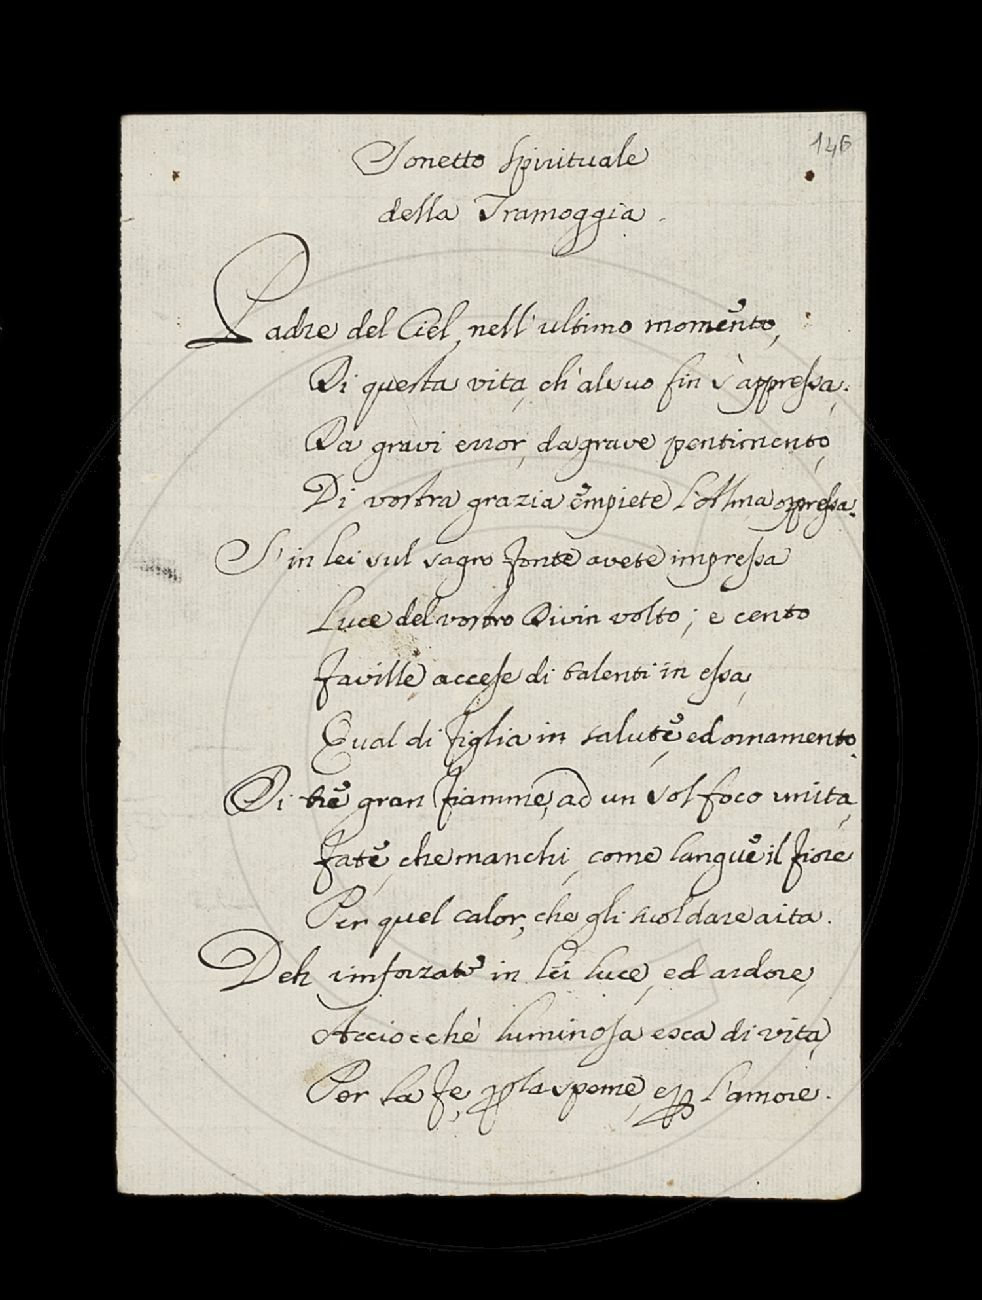 146
Sonetto Spirituale
della Tramoggia.
Padre del Ciel, nell'ultimo momento,
Di questa vita, ch'al suo fin s'appressa;
Da gravi error, da grave pentimento,
Di vostra grazia empiete l'Alma oppressa.
S'in lei sul sagro fonte avete impressa
Luce del vostro Divin volto; e cento
Faville accese di talenti in essa,
Qual di figlia in salute, ed ornamento.
Di trè gran fiamme, ad un sol foco unita,
Fate, che manchi, come langue il fiore
Per quel calor, che gli suol dare aita.
Deh rinforzate in lei luce, ed ardore,
Acciocchè luminosa esca di vita,
Per la Fe, la speme, e l'amore.